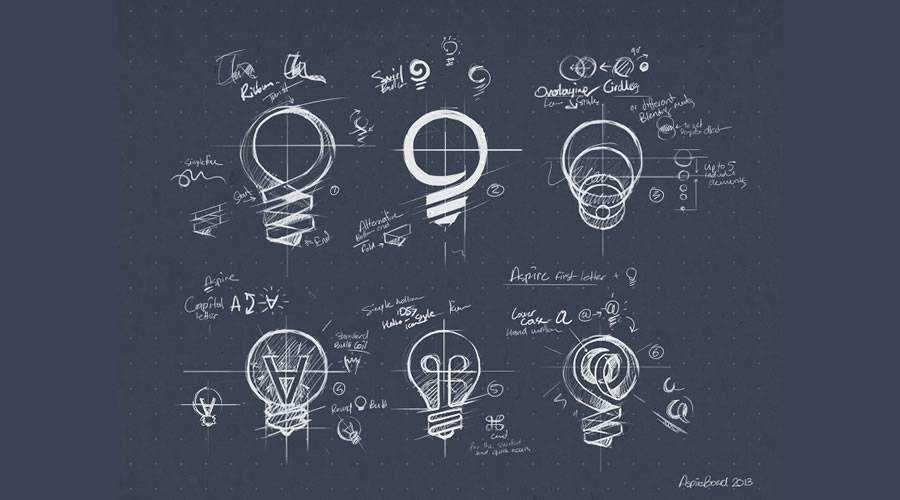 Ribbon
Twist
Simple line
Start
End
1
Swirl
Bulb
2
Alternative
Bottom end
Fold
90°
Overlaying Circles
or different
Blending modes
Up to 5
individual
elements
3
Aspire
Capital
letter
A
Standard
Bulb Coil
Round Bulb
4
Simple hollow
iOS7
style
5
cmd
for the
and quick access
Aspire first letter +
Lower
case - a
Hand written
@ → @
6
a
AspireBoard 2013